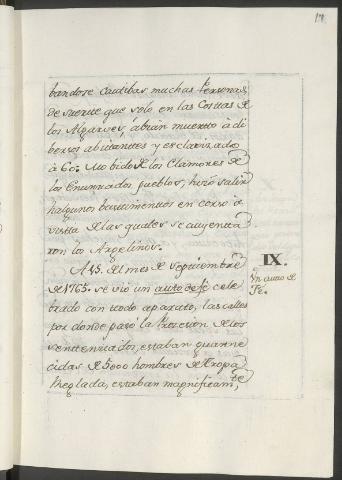 bandose Cautibas muchas Personas,
de suerte que solo en las Costas de
los Algarves, abian muerto à di
bersos abitanttes y esclavizado
à 60. Mobido de los Clamores de
los enunciados pueblos, hizo salir
halgunos bastimentos en corso à
vista de las quales se auyenta
ron los Argelinos.
A 25. del mes de Septiembre
de 1765. se vió un auto de fé cele
brado con todo aparato, las calles
por donde pasó la Procesion de los
sentenciados, estaban guarne
cidas de 5000 hombres de tropa
Reglada, estaban magnificamte
IX.
Un auto de
Fé.